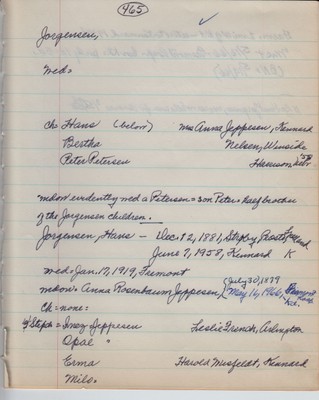 465
Jorgensen,
Wed:
Ch Hans (below) Mrs Anna Jeppesen, Kennard
Bertha Nelsen, Winside
Peter Petersen Harrison, Nebr '58
widow evidently wed a Petersen = son Peter = half brother
of the Jorgensen children.
Jorgensen, Hans — Dec. 12, 1881,
June 7, 1958, Kennard K
wed = Jan. 17, 1919, Fremont
(July 30, 1879
widow: Anna Rosenbaum Jeppesen, May 16, 1966,
Ch = none:
4 Steph = Inez Jeppesen Leslie French, Arlington
Opal "
Erma Harold Misfeldt, Kennard
Milo.